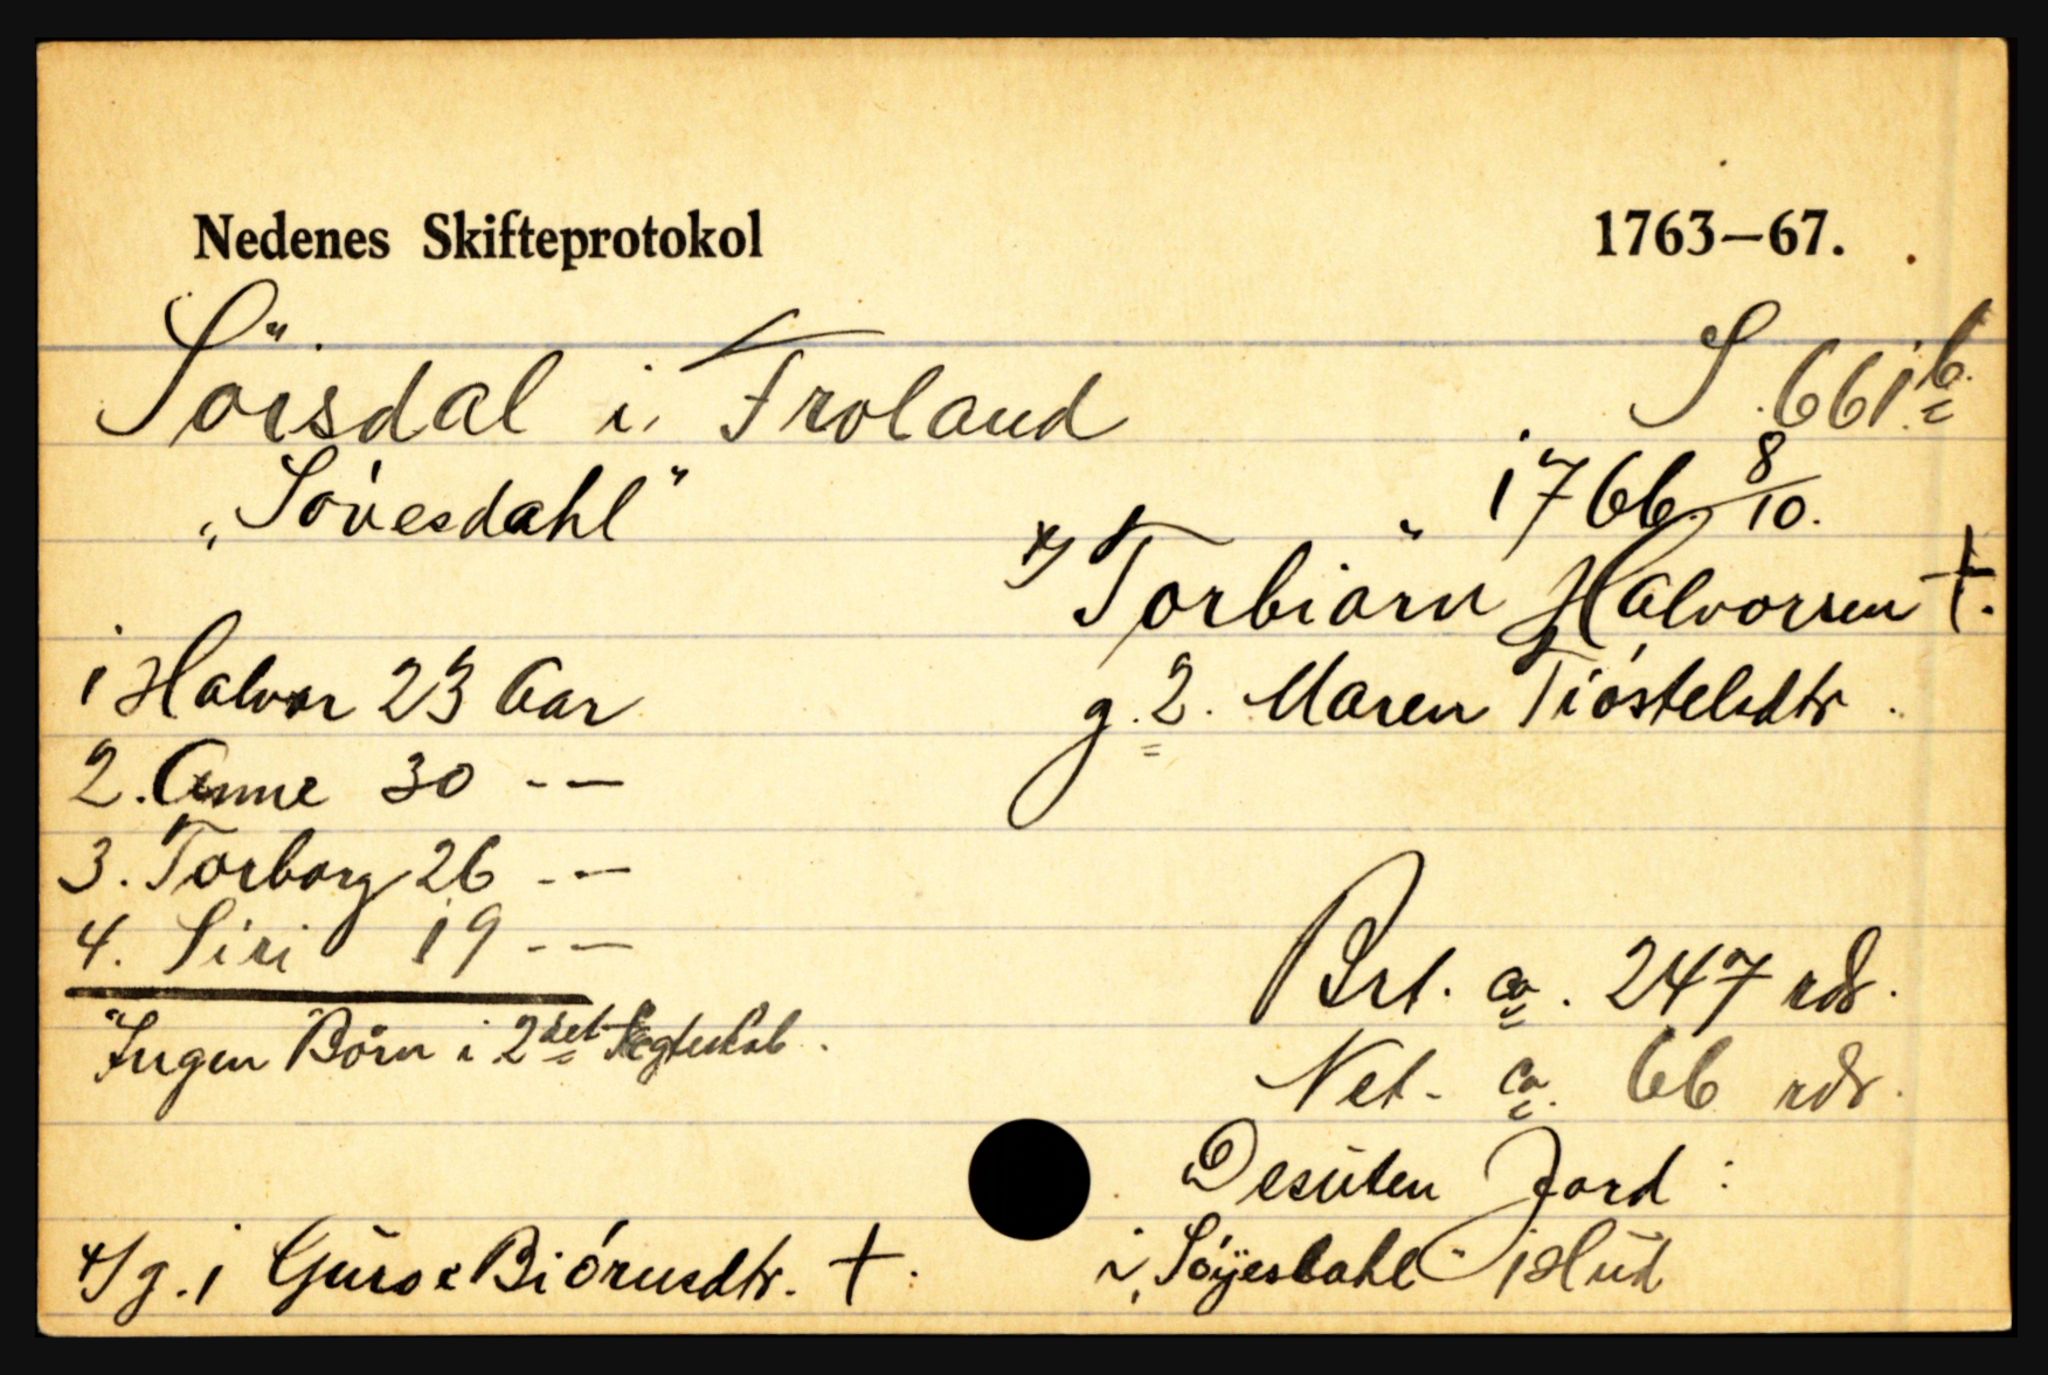 Nedenes Skifteprotokol 1763—67.
Söisdal i Froland S. 661 b.
„Sövesdahl“ 1766 8/10.
x) Torbiörn Halvorsen †.
1 Halvor 23 Aar g. 2. Maren Tióstelsdtr.
2. Anne 30 - —
3. Torborg 26 - —
4. Siri 19 - —
Brt. ca. 247 rdr.
Ingen Börn i 2det Ægteskab.
Net. ca. 66 rdr.
Desuten Jord:
x/ g. 1 Guro Biórnsdtr. †. i „Söyesdahl“ 1 Hud